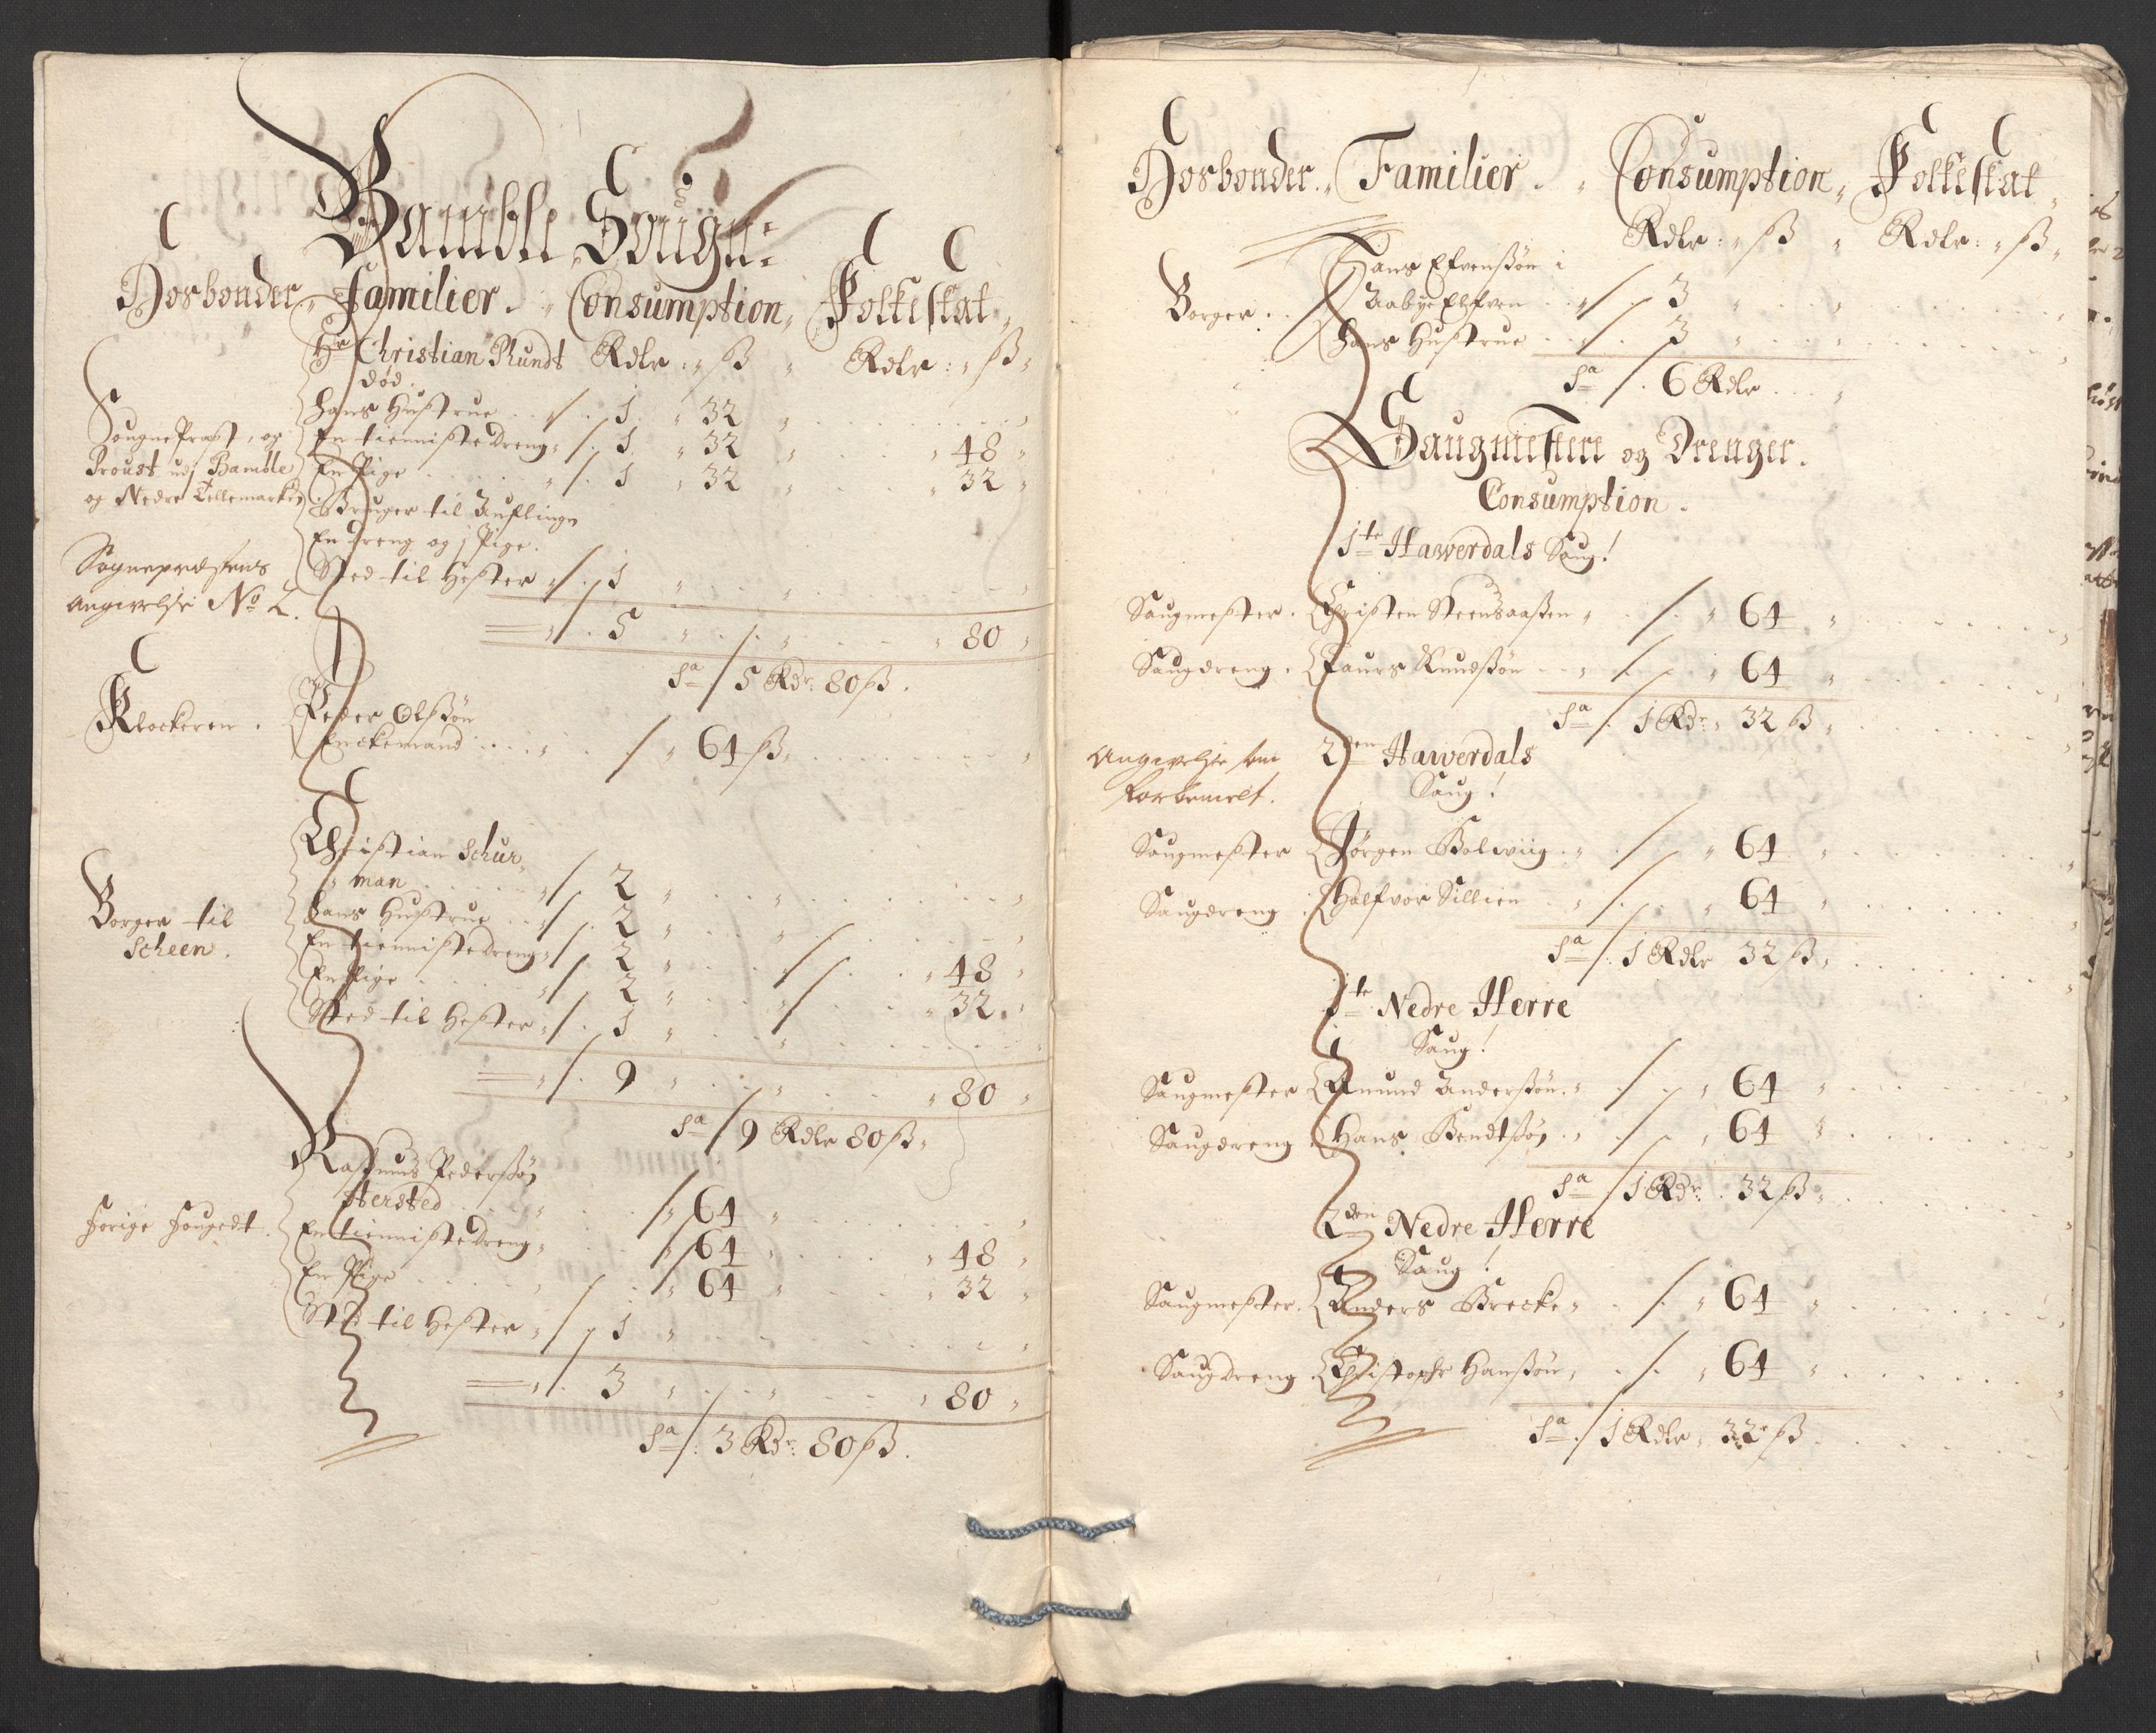 Bamble Sougn:
Hosbonder, Familier. Consumption, Folkeskat,
Hr Christian Plundt Rdlr: ß Rdlr: ß
død.
Sougne Præst, og
Proust udj Bamble
og Nedre Tellemarken
hans Hustrue 1 32
En tienniste dreng 1 32 48
En Pige 1 32 32
Bruger til
En dreng og j Pige.
Sted til Hester 1
Sognepræstens
Angivelse No 2.
5 80
Sa 5 Rdr: 80 ß.
Klockeren. Peder Olßøn
Enckemand 64 ß
Borger til
Scheen.
Christian Schur-
man 2
hans Hustrue 2
En tienniste dreng 2 48
En Pige 2 32
Sted til Hester 1
9 80
Sa 9 Rdlr 80 ß
forige fougedt.
Rasmus Pederßøn
Hersted 64
En tienniste dreng 64 48
En Pige 64 32
Sted til Hester 1
3 80
Sa 3 Rdr: 80 ß.
Hosbonder. Familier. Consumption, Folkeskat,
Rdlr: ß Rdlr: ß
Borger. Hans Efvenßøn i
Aabye Elfven 3
hans Hustrue 3
Sa 6 Rdlr
Saugmestere og Drenger.
Consumption.
1te Hawerdals Saug!
Saugmester. Christen Steensaaßen 64
Saugdreng. Laurs Knudßøn 64
Sa 1 Rdr: 32 ß
Angivelse som
forbemelt.
2den Hawerdals
Saug!
Saugmester Jørgen Bolwiig 64
Saugdreng Halfvor Sillien 64
Sa 1 Rdlr 32 ß
1te Nedre Herre
Saug!
Saugmester Anund Anderßøn 64
Saugdreng Hans Bendtßøn 64
Sa 1 Rdr: 32 ß
2den Nedre Herre
Saug!
Saugmester. Anders Brecke 64
Saugdreng Christopfr Hanßøn 64
Sa 1 Rdlr 32 ß